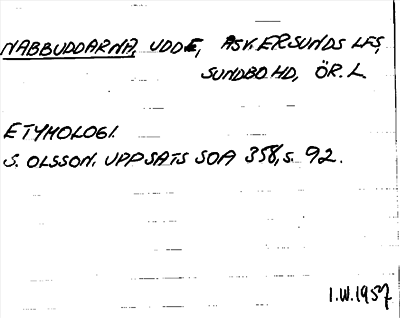 NABBUDDARNA, UDDE, ASKERSUNDS LFS,
SUNDBO HD, ÖR. L
ETYMOLOGI.
S. OLSSON. UPPSATS SOA 358, s. 92.
I.W. 1957